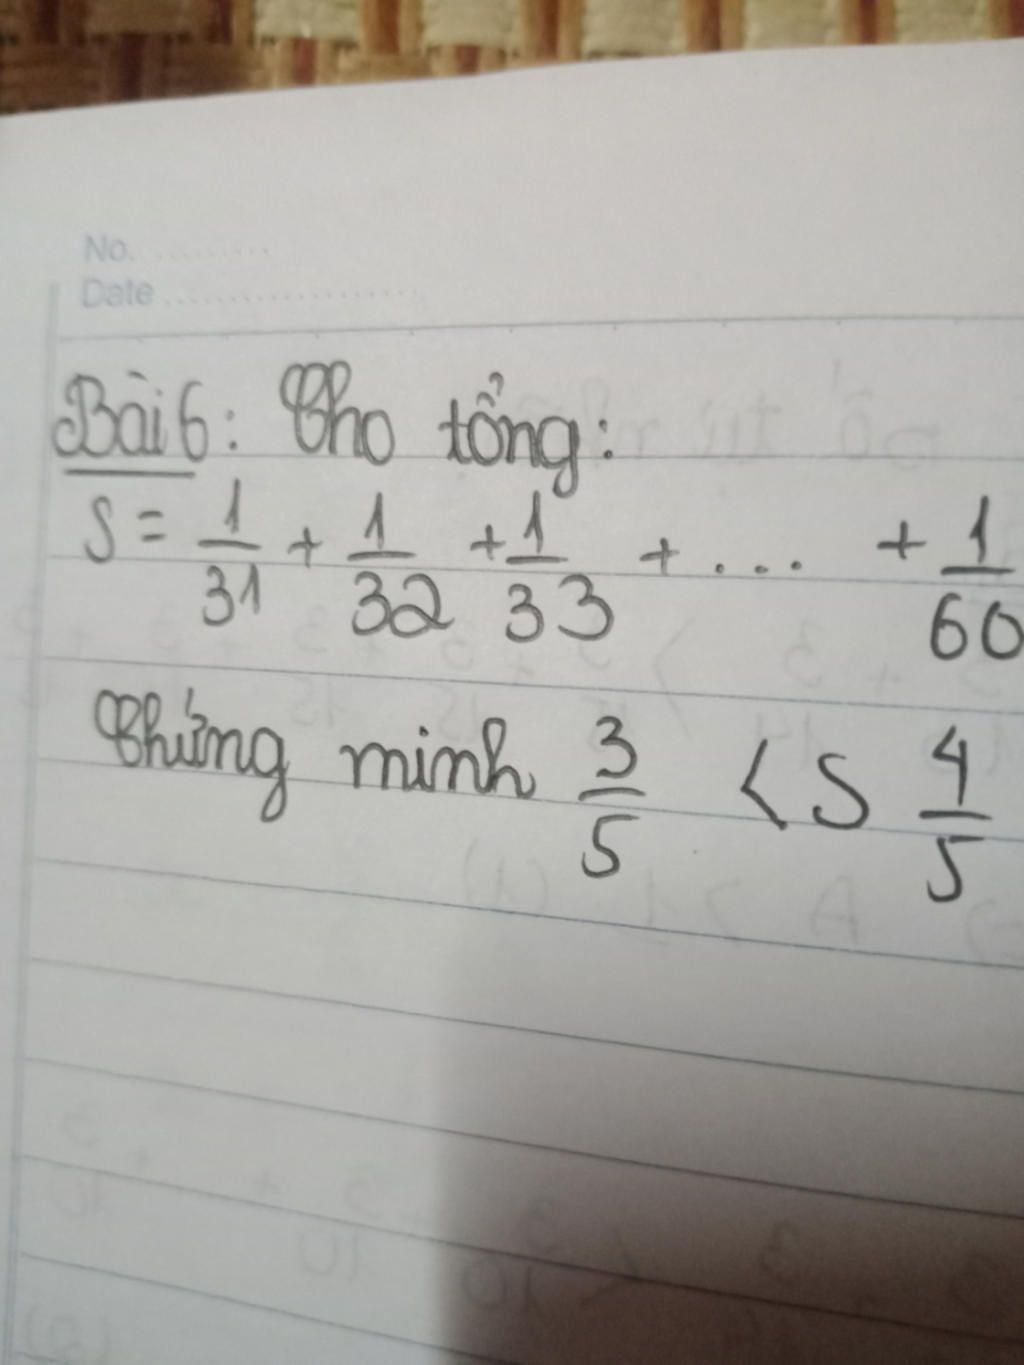 No. .........
Date ..................
Bài 6: Cho tổng:
S = 1/31 + 1/32 + 1/33 + ... + 1/60
Chứng minh 3/5 < S 4/5